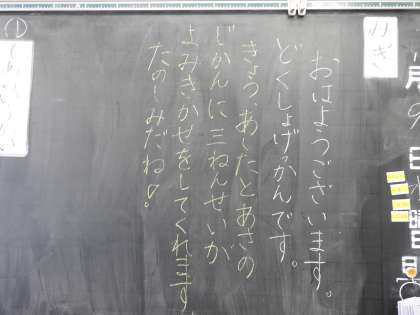 おはようございます。
どくしょげっかんです。
きょう、あしたとあさの
じかんに三ねんせいが
よみきかせをしてくれます。
たのしみだね！